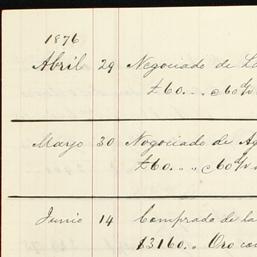 1876
Abril 29 Negociado de La
£60.. 
Mayo 30 Negociado de Ag
£60. 
Junio 14 Comprado de la
$3160.. Oro con